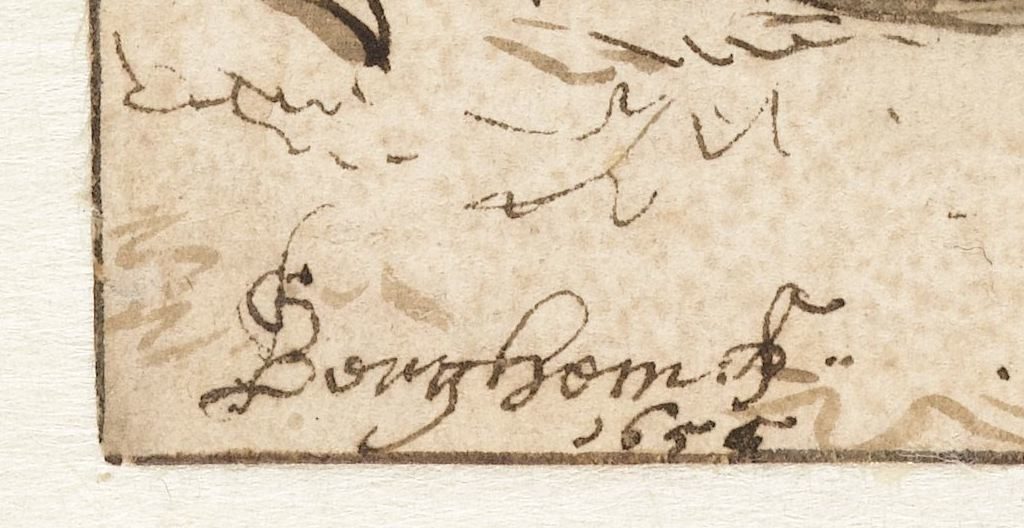 Berghem. f..
1655